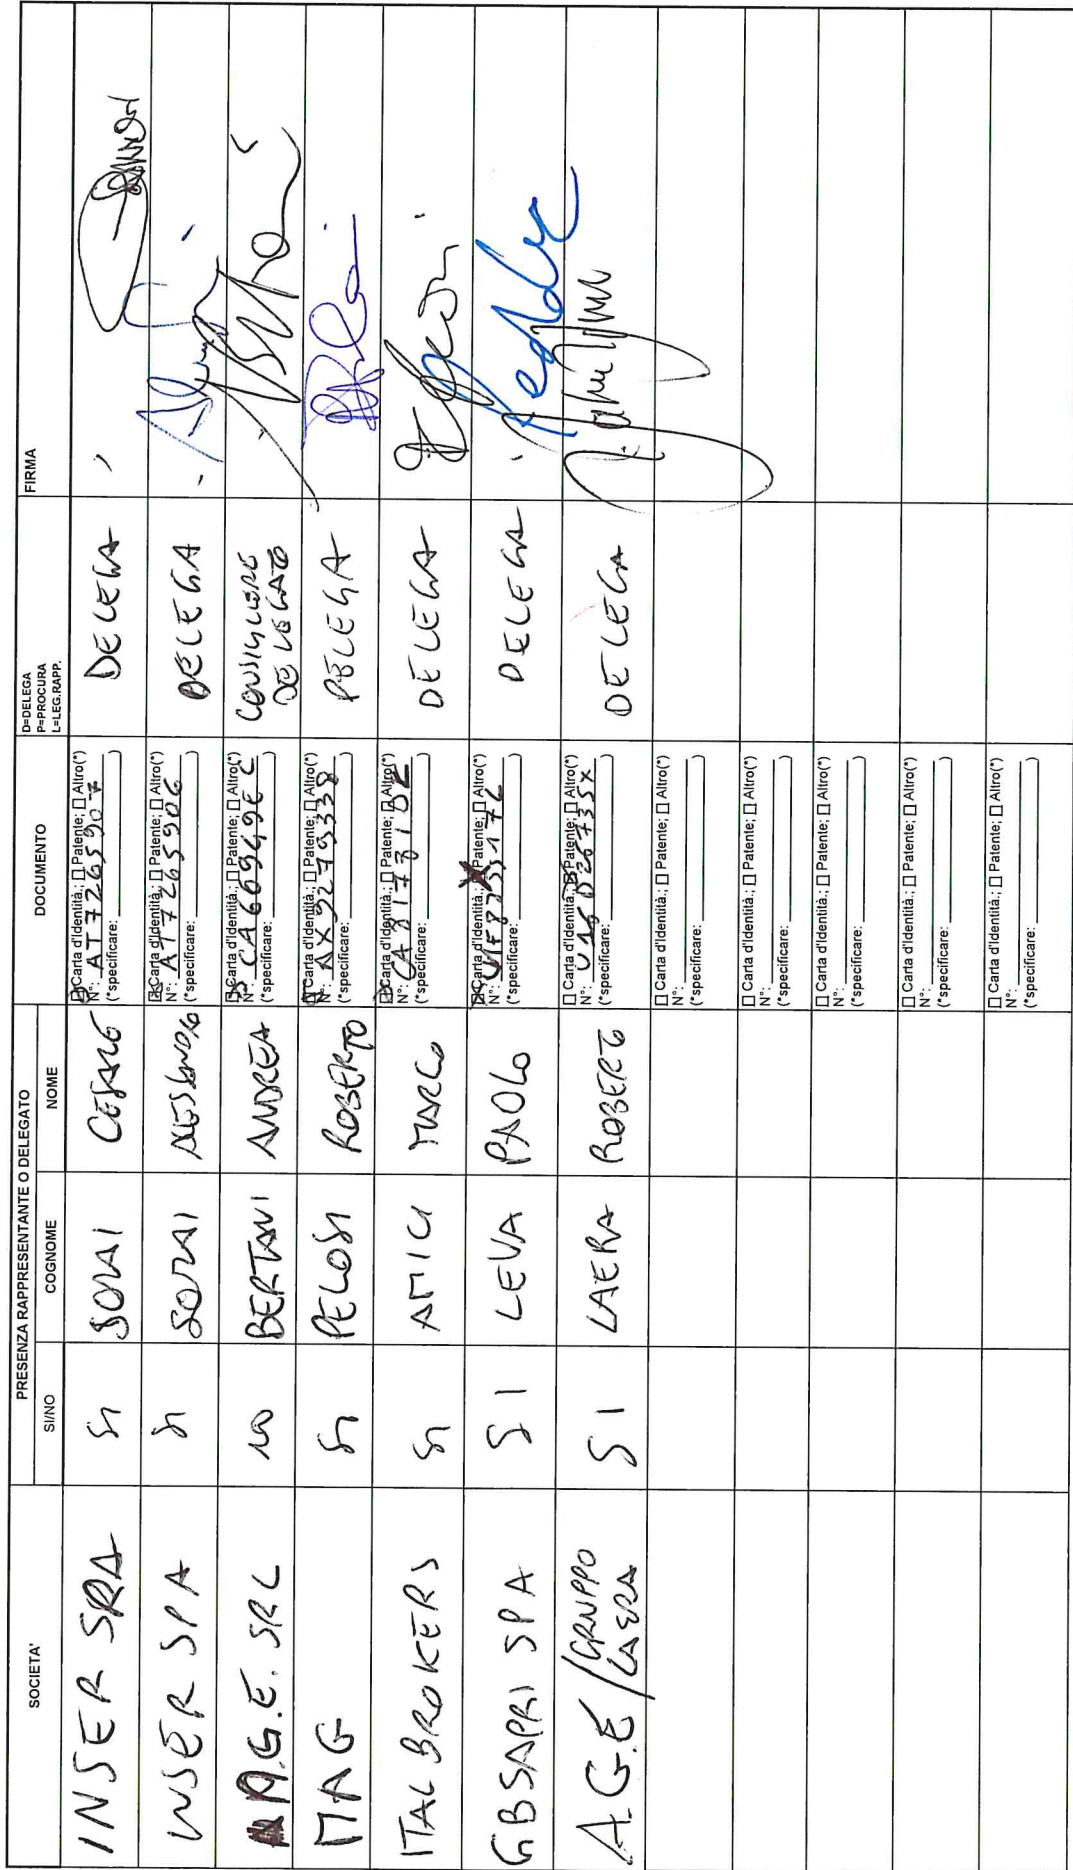 SOCIETA'
PRESENZA RAPPRESENTANTE O DELEGATO
SI/NO
COGNOME
NOME
DOCUMENTO
D=DELEGA
P=PROCURA
L=LEG.RAPP.
FIRMA
INSER SPA
SI
CESARE
Carta d'Identità.; Patente; Altro(*)
N°: AT7265907
(*specificare: )
DELEGA
INSER SPA
SI
Carta d'Identità.; Patente; Altro(*)
N°: AT7265906
(*specificare: )
DELEGA
A.G.E. SRL
NO
BERTANI
ANDREA
Carta d'Identità.; Patente; Altro(*)
N°:
(*specificare: )
CONSIGLIERE
DELEGATO
MAG
SI
PELOSI
ROBERTO
Carta d'Identità.; Patente; Altro(*)
N°: AX9279338
(*specificare: )
DELEGA
ITAL BROKERS
SI
AMICI
MARCO
Carta d'Identità.; Patente; Altro(*)
N°:
(*specificare: )
DELEGA
GBSAPRI SPA
SI
LEVA
PAOLO
Carta d'Identità.; Patente; Altro(*)
N°:
(*specificare: )
DELEGA
A.G.E / GRUPPO
LAERA
SI
LAERA
ROBERTO
Carta d'Identità.; Patente; Altro(*)
N°:
(*specificare: )
DELEGA
Carta d'Identità.; Patente; Altro(*)
N°:
(*specificare: )
Carta d'Identità.; Patente; Altro(*)
N°:
(*specificare: )
Carta d'Identità.; Patente; Altro(*)
N°:
(*specificare: )
Carta d'Identità.; Patente; Altro(*)
N°:
(*specificare: )
Carta d'Identità.; Patente; Altro(*)
N°:
(*specificare: )